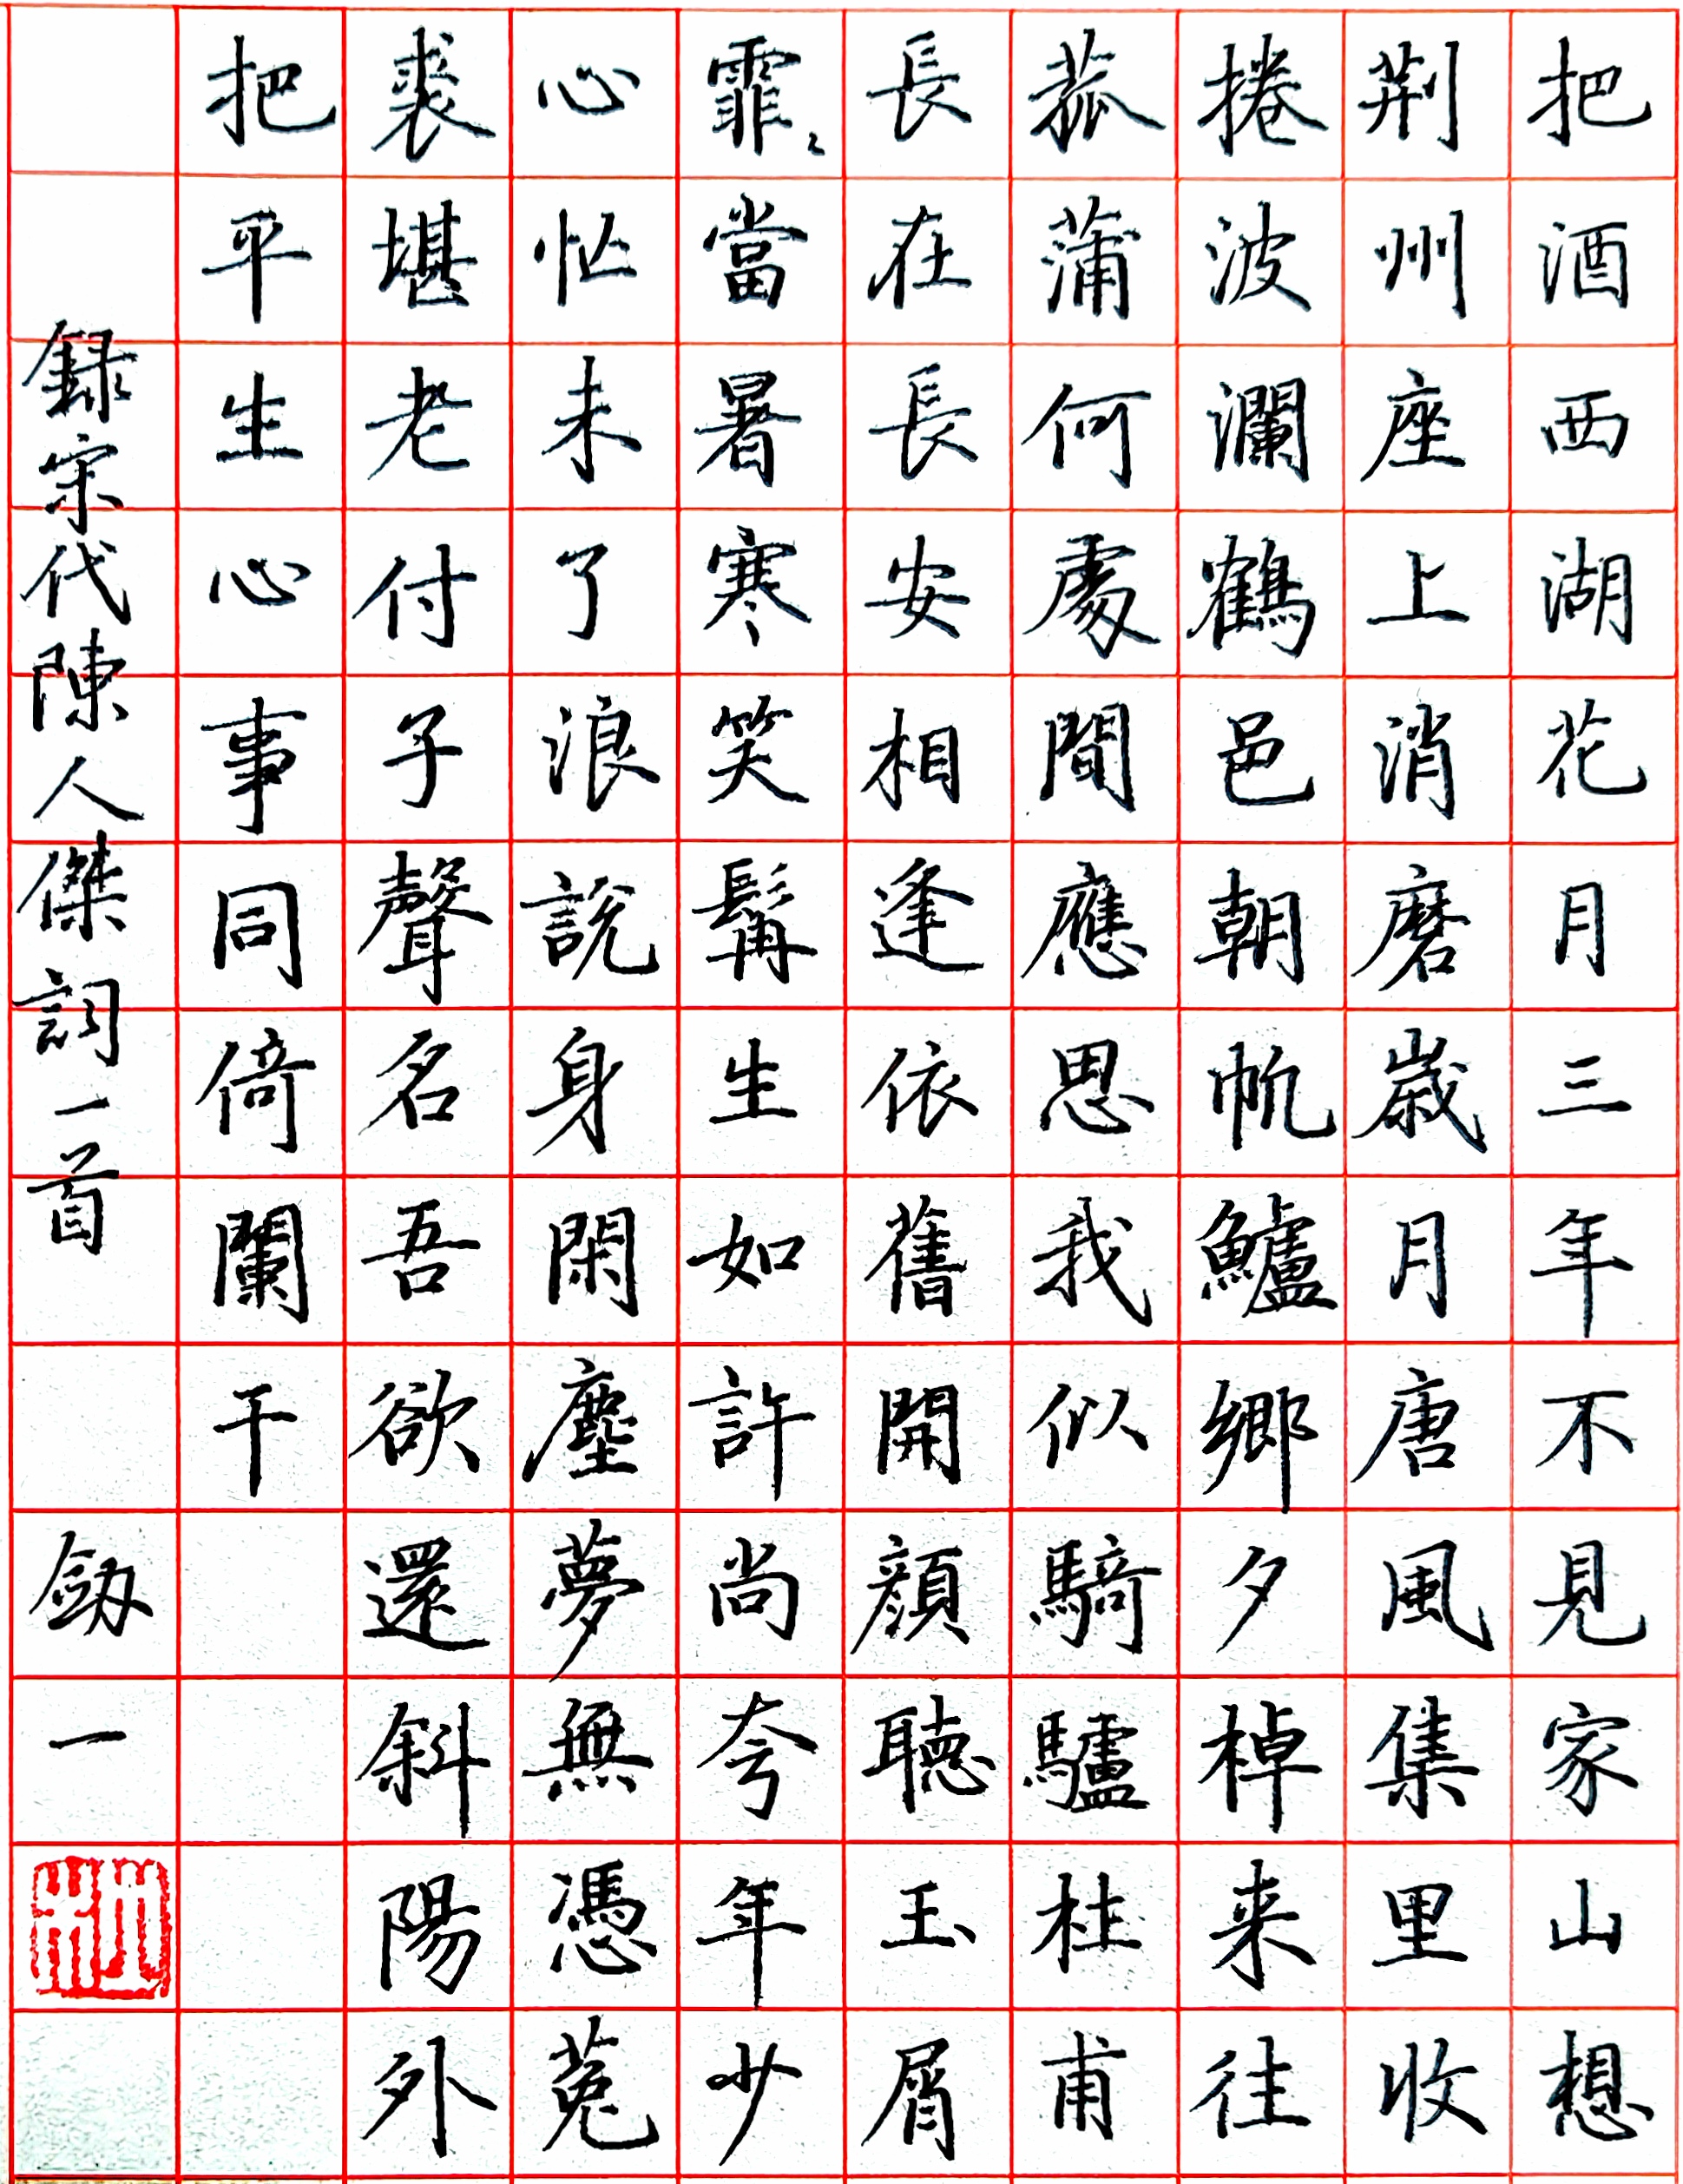 把酒西湖花月三年不見家山想
荆州座上消磨歲月唐風集里收
捲波瀾鶴邑朝帆鱸鄉夕棹来往
菰蒲何處間應思我似騎驢杜甫
長在長安相逢依舊開顏聽玉屑
霏〻當暑寒笑髯生如許尚夸年少
心忙未了浪說身閑塵夢無憑菟
裘堪老付子聲名吾欲還斜陽外
把平生心事同倚闌干
録宋代陳人傑詞一首
劔一